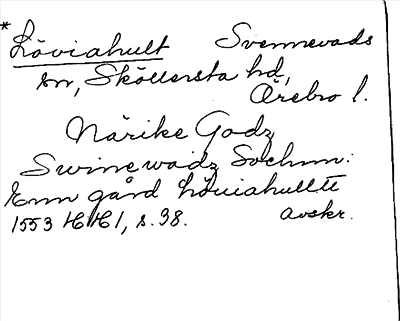 * Löviahult Svennevads
sn, Sköllersta hd,
Örebro l.
Närike Godz
Swinewadz Sochnn:
Enn gård Löuiahulltt
1553 HH 1, s. 98. avskr.